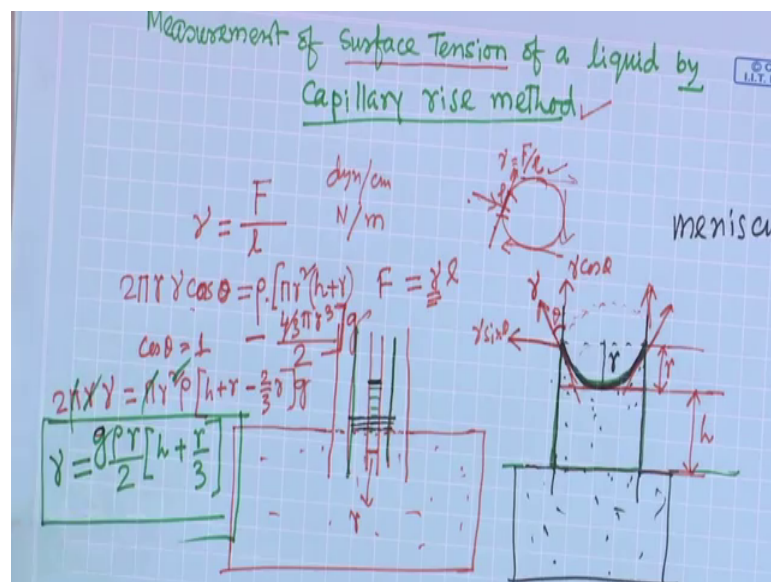 Measurement of Surface Tension of a liquid by
Capillary rise method ✓
©
I.I.T.
γ = F/l
dyn/cm
N/m
γ = F/l ✓
meniscu
2πrγcosθ = ρ.[πr²(h+r) - (4/3 πr³)/2]g
F = γl
cosθ = 1
2πrγ = πr²ρ[h+r-2/3 r]g
γ = gρr/2 [h + r/3]
γ
γcosθ
θ
γsinθ
r
r
h
r